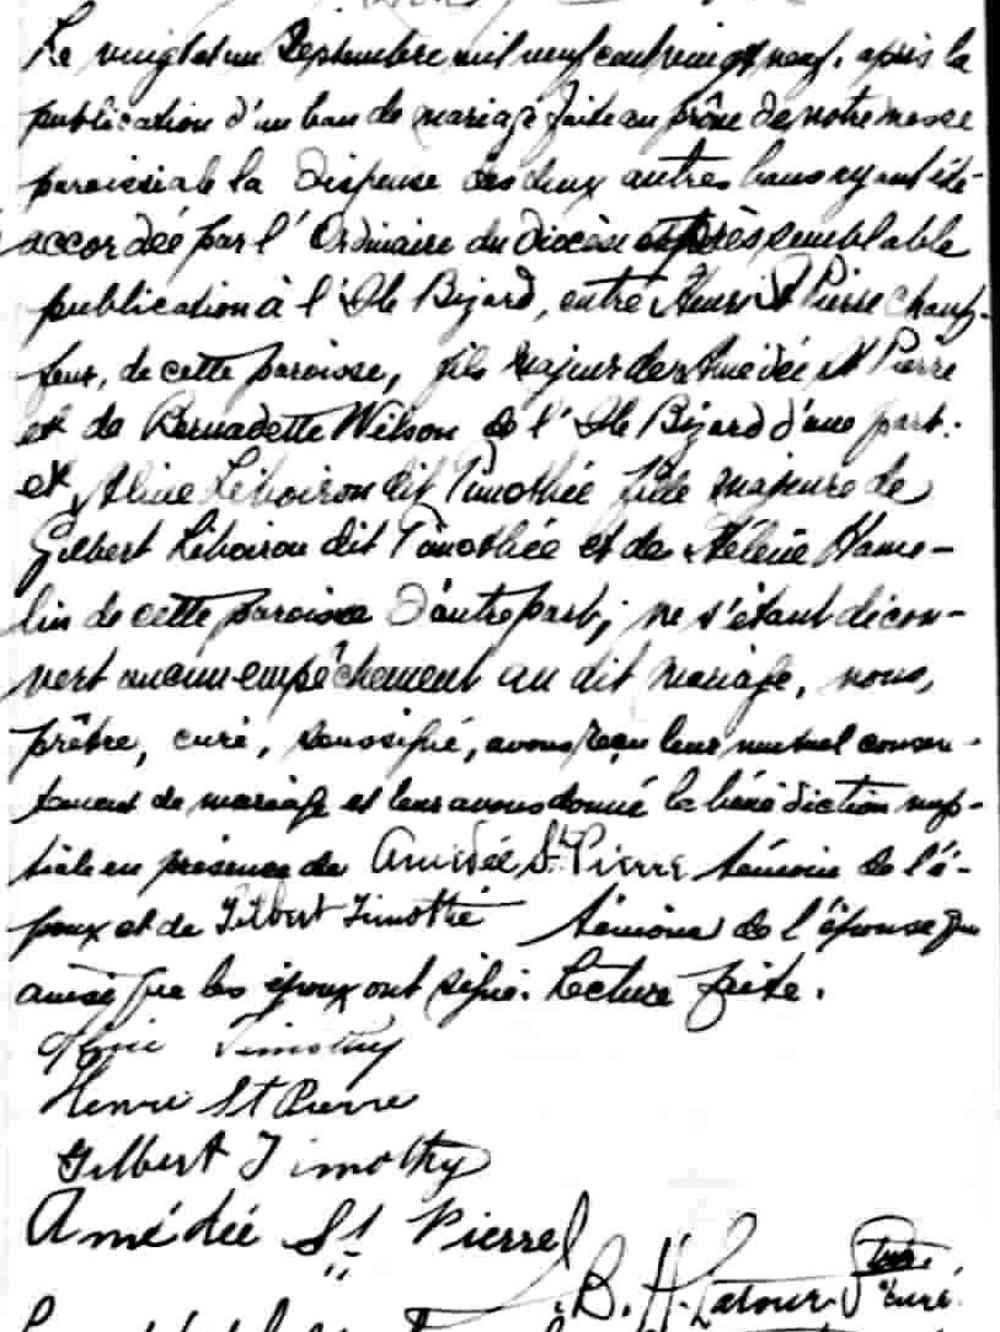 Le vingt et un Septembre mil neuf cent vingt neuf, après la
publication d'un ban de mariage faite au prône de notre messe
paroissiale la dispense des deux autres bans ayant été
accordée par l'Ordinaire du Diocèse et après semblable
publication à l'Ile Bizard, entre Henri St Pierre chauf-
feur, de cette paroisse, fils majeur de Amédée St Pierre
et de Bernadette Wilson de l'Ile Bizard d'une part.
et Aline Liboiron dit Timothée fille majeure de
Gilbert Liboiron dit Timothée et de Hélène Hame-
lin de cette paroisse d'autre part; ne s'étant décou-
vert aucun empêchement au dit mariage, nous,
prêtre, curé, soussigné, avons reçu leur mutuel consen-
tement de mariage et leur avons donné la bénédiction nup-
tiale en présence de Amédée St. Pierre témoin de l'é-
poux et de Gilbert Timothé témoin de l'épouse qui
ainsi que les époux ont signé. Lecture faite.
Timothy
Henri St Pierre
Gilbert Timothy
Amédée St Pierre
B. H. Latour Ptre.
curé.